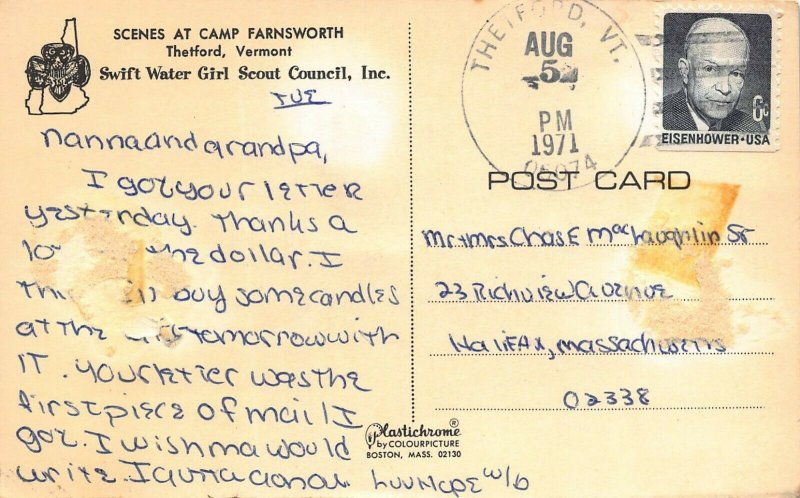 SCENES AT CAMP FARNSWORTH
Thetford, Vermont
Swift Water Girl Scout Council, Inc.
TUE
Nanna and Grandpa,
I got your letter
yesterday. Thanks a
the dollar. I
buy some candles
at the tomorrow with
IT. Your letter was the
first piece of mail I
got. I wish ma would
write. I gotta
THETFORD, VT.
AUG
5
PM
1971
05074
6c
EISENHOWER·USA
POST CARD
Mr+Mrs Chas E MacLaughlin Sr
23 Richview avenue
Halifax, Massachusetts
02338
Plastichrome®
by COLOURPICTURE
BOSTON, MASS. 02130